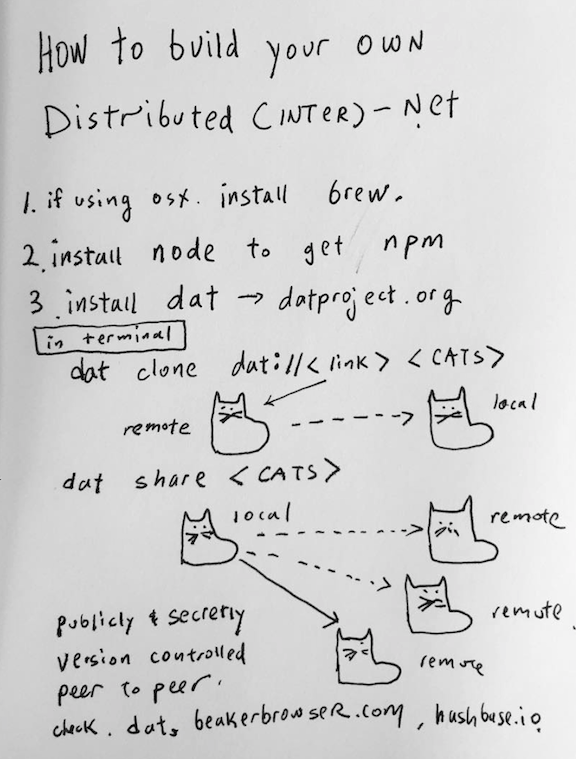 HOW to build your OWN
Distributed (INTER)-Net
1. if using osx. install brew.
2. install node to get npm
3. install dat → datproject.org
in terminal
dat clone dat://<link> <CATS>
remote
local
dat share <CATS>
local
remote
remote
remote
publicly & secretly
version controlled
peer to peer.
check. dat, beakerbrowseR.com, hashbase.io